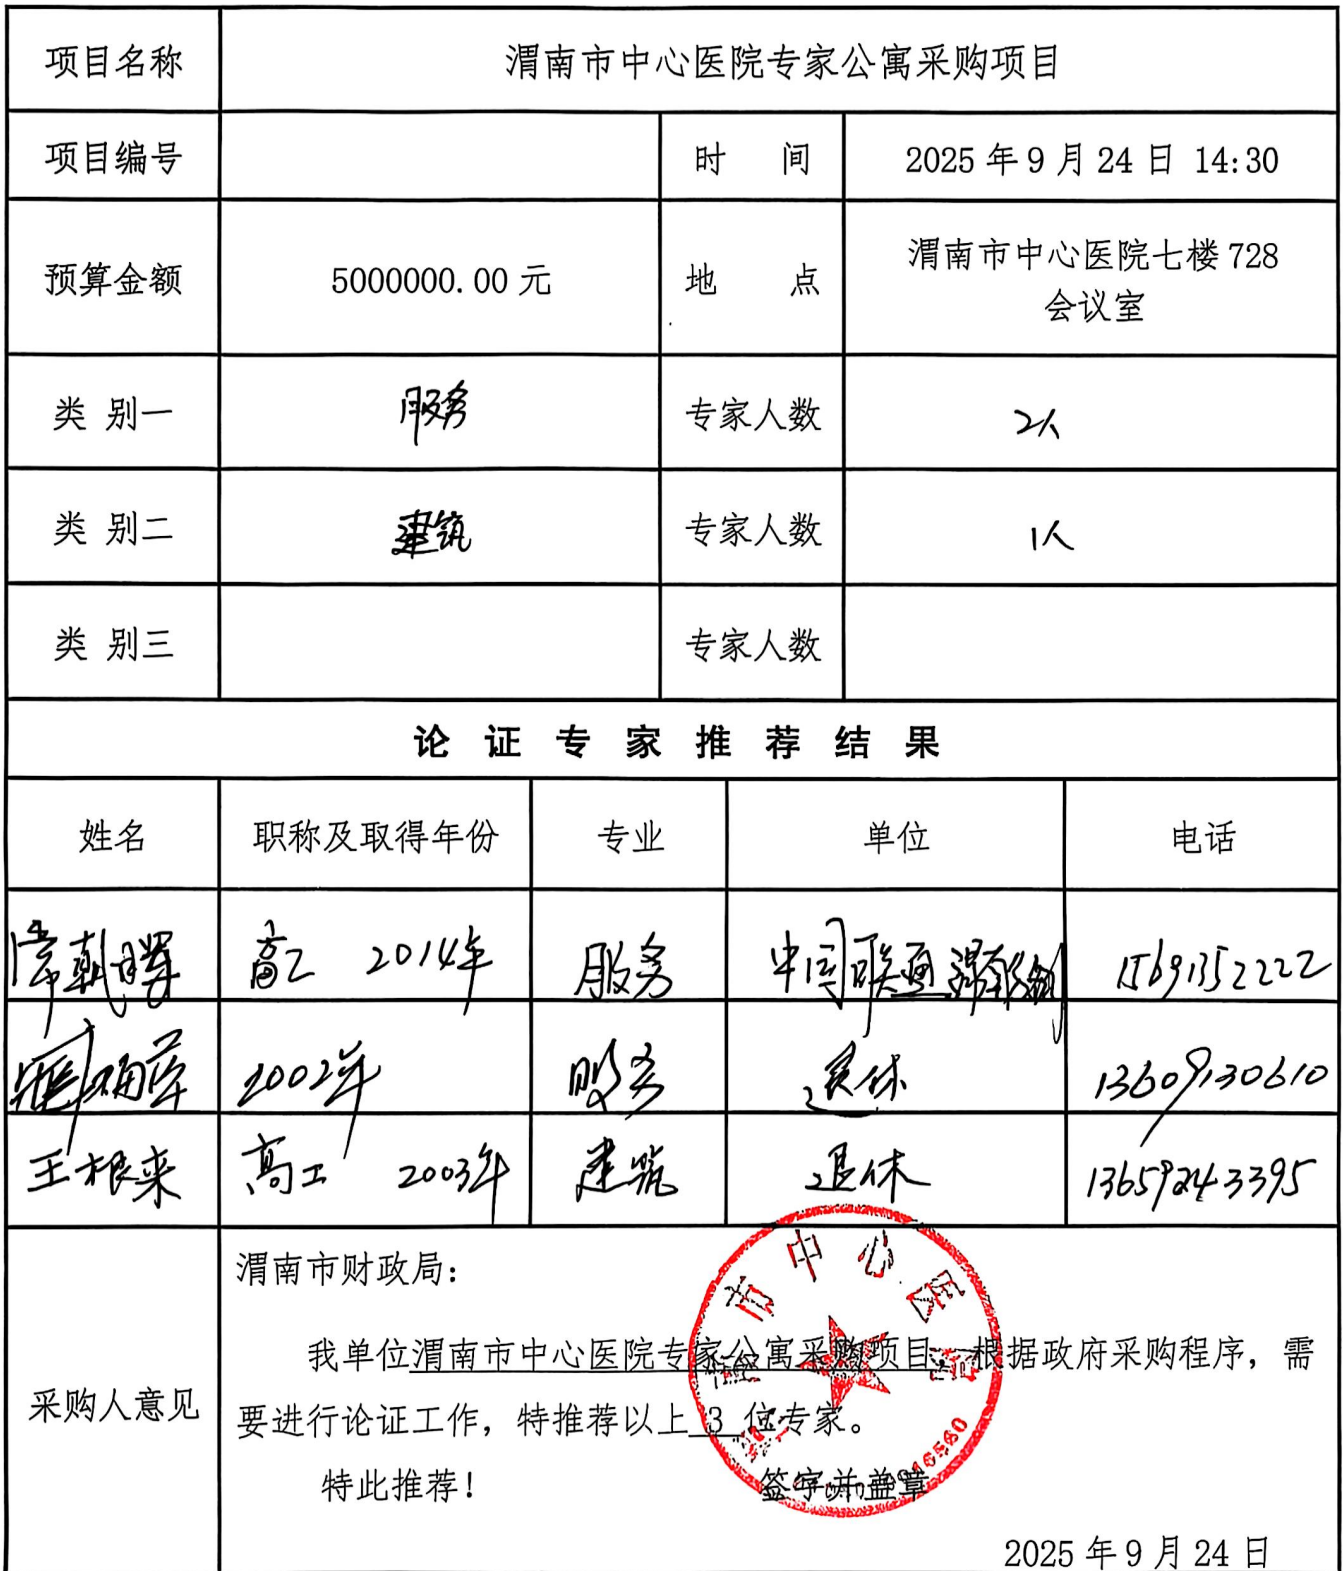 项目名称 渭南市中心医院专家公寓采购项目
项目编号 时 间 2025年9月24日 14:30
预算金额 5000000.00元 地 点 渭南市中心医院七楼728
会议室
类 别一 服务 专家人数 2人
类 别二 建筑 专家人数 1人
类 别三 专家人数
论证专家推荐结果
姓名 职称及取得年份 专业 单位 电话
常朝晖 高工 2014年 服务 中国联通渭南 15691352222
2002年 服务 退休 13609130610
王根来 高工 2003年 建筑 退休 13659243395
采购人意见
渭南市财政局:
我单位渭南市中心医院专家公寓采购项目,根据政府采购程序,需
要进行论证工作,特推荐以上 3 位专家。
特此推荐! 签字并盖章
2025年9月24日
市中心医